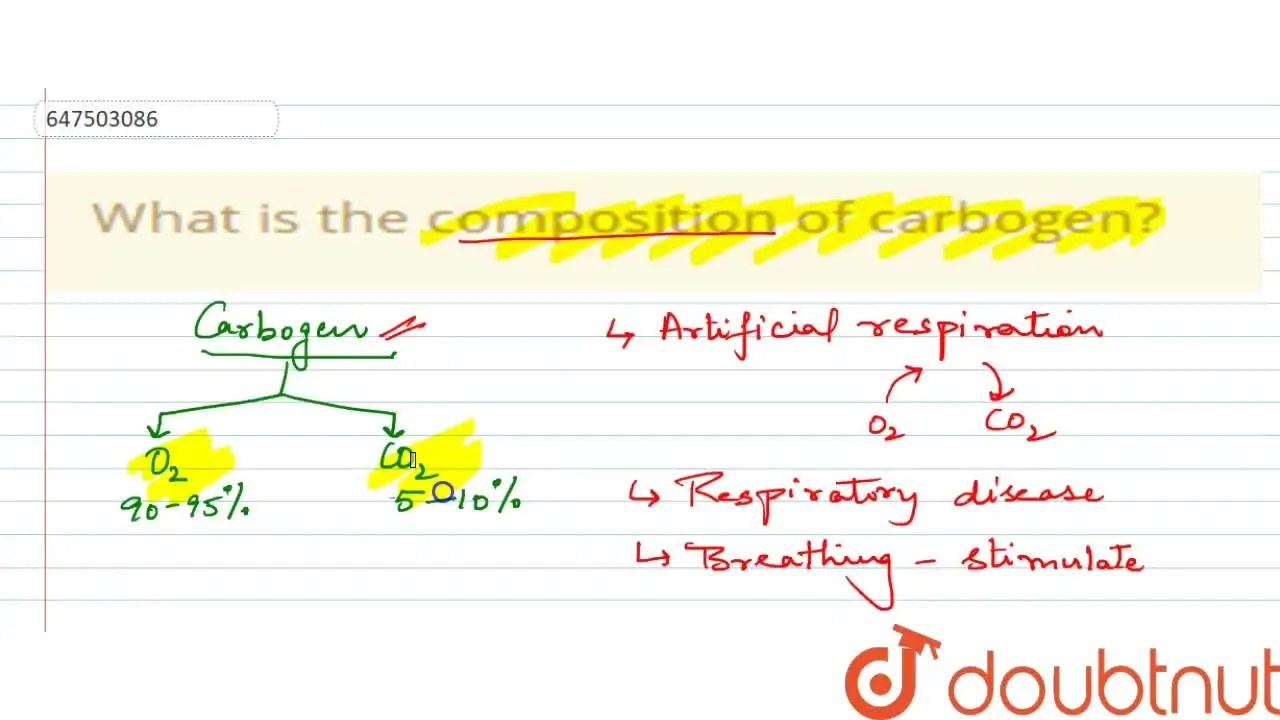 647503086
What is the composition of carbogen?
Carbogen
O2
CO2
90-95%
5-10%
↳ Artificial respiration
O2
CO2
↳ Respiratory disease
↳ Breathing - stimulate
doubtnut